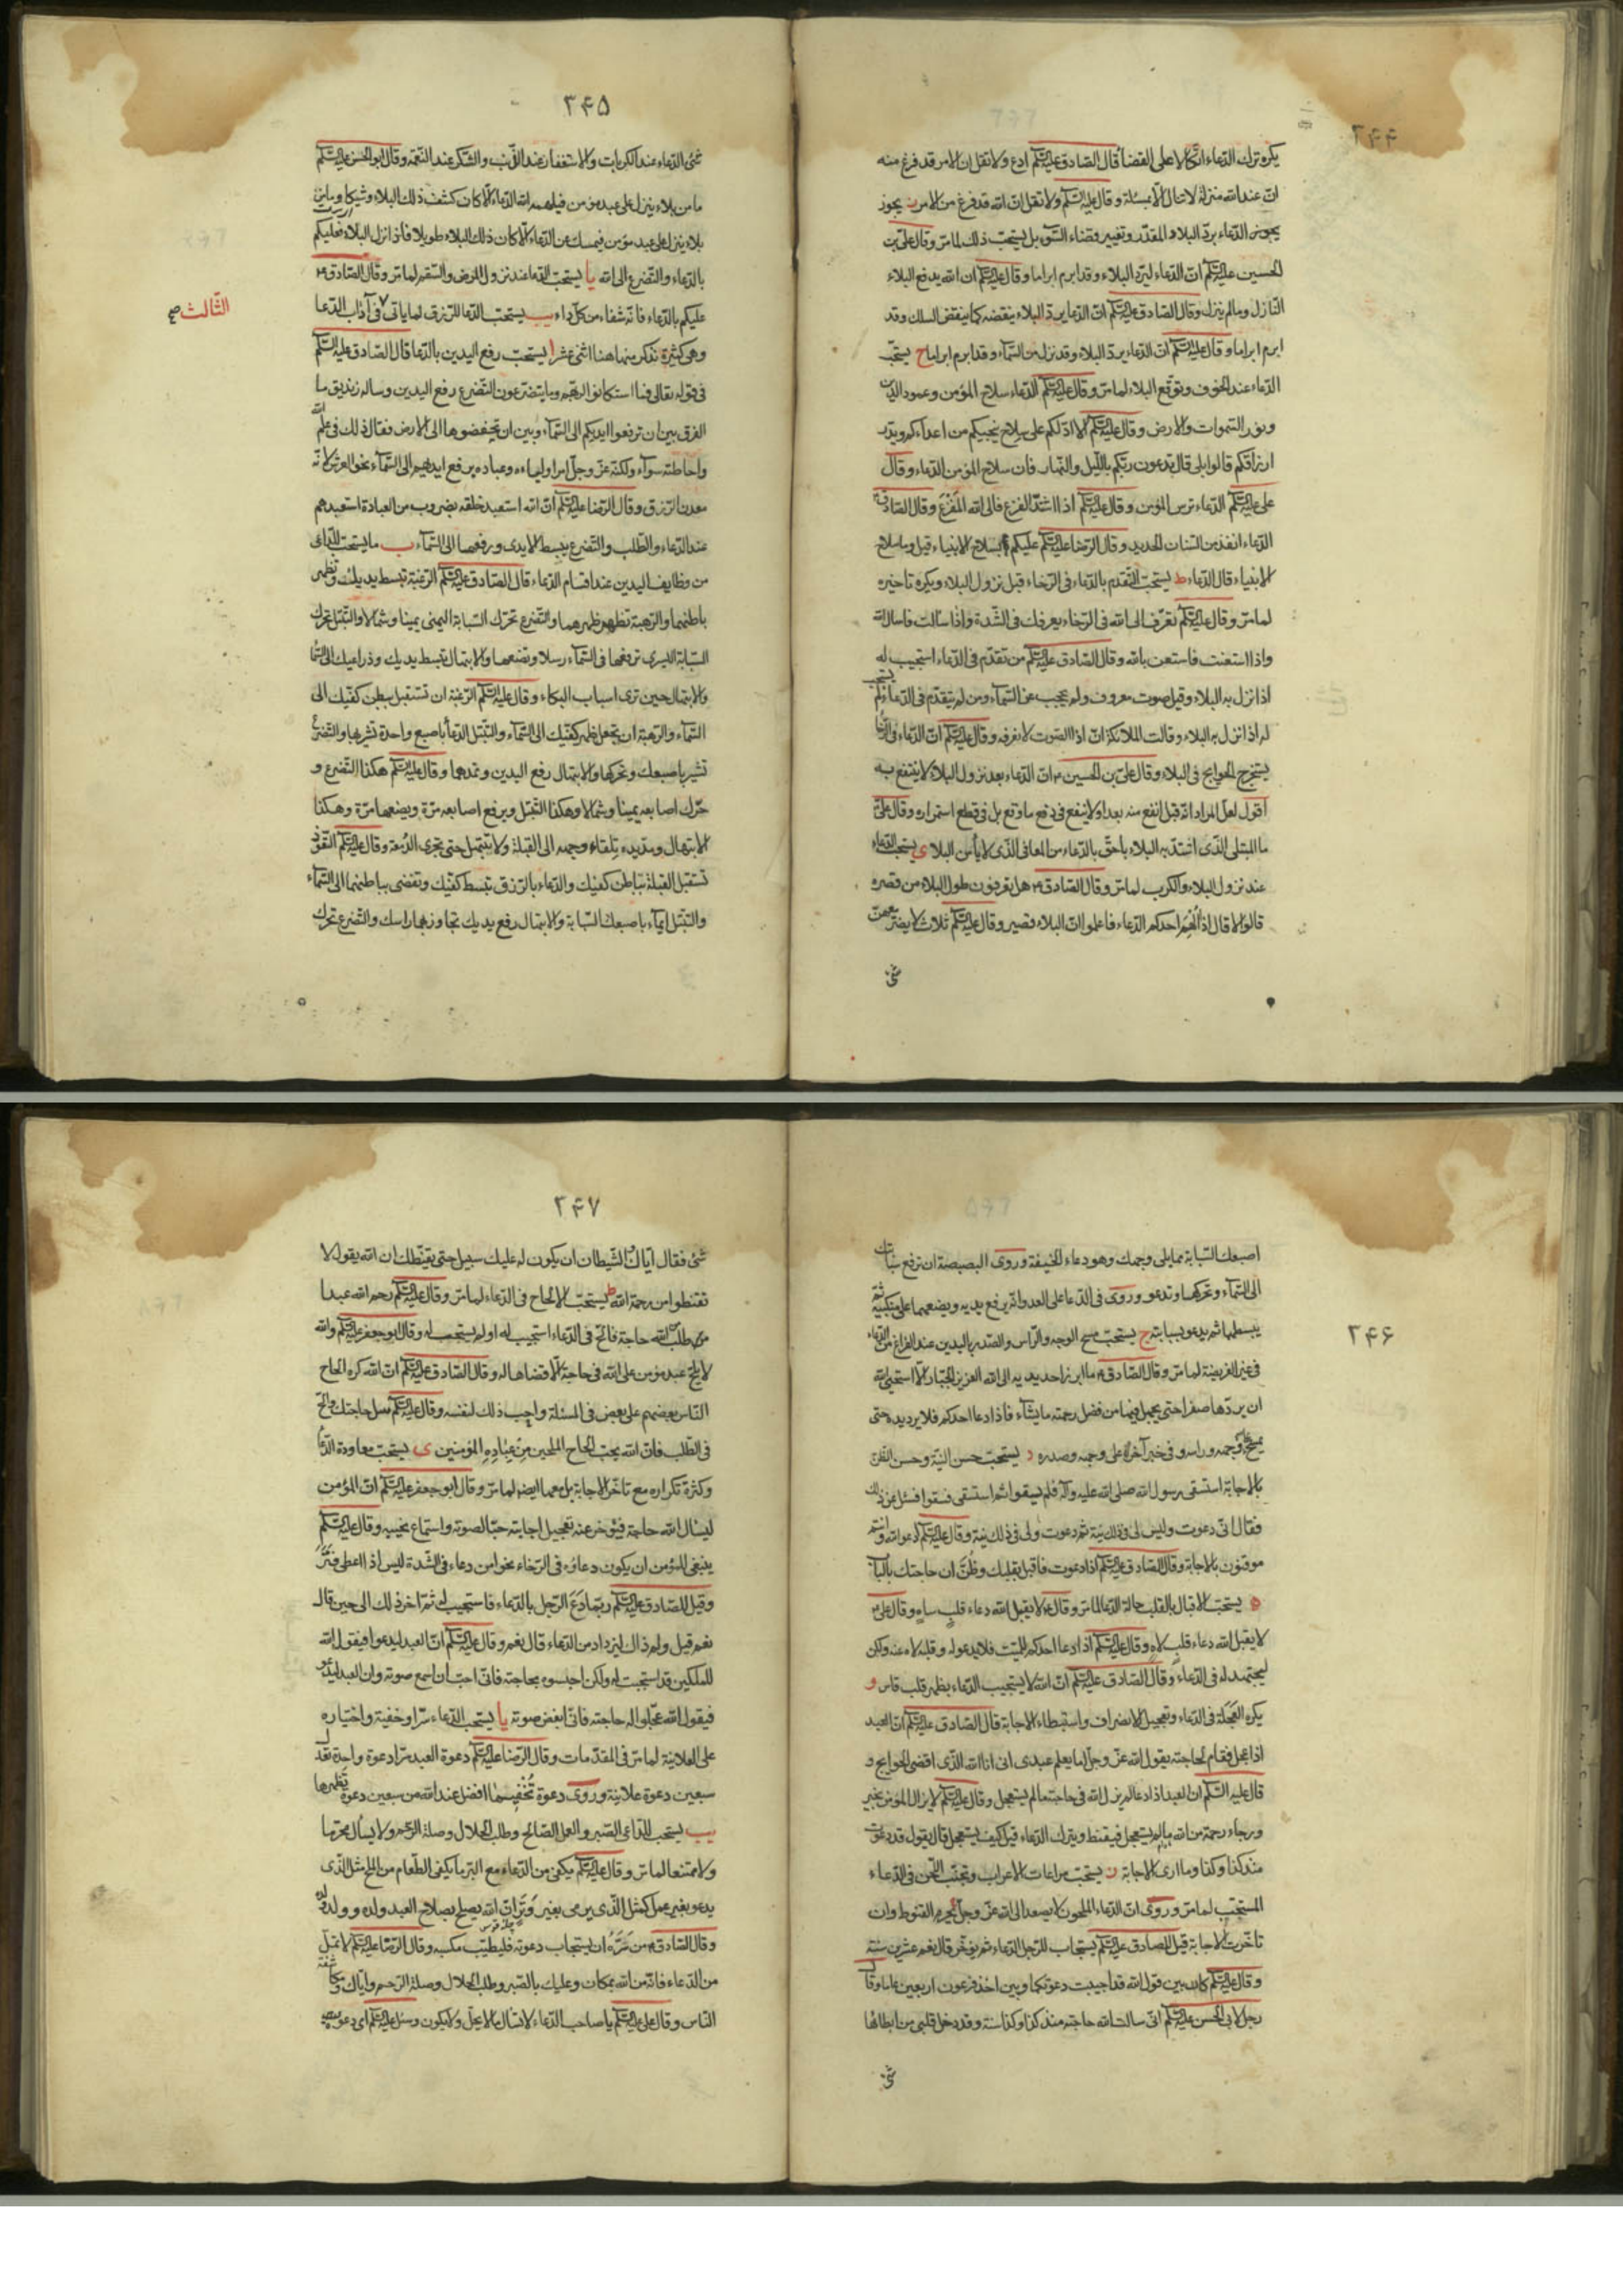 ٣۴۴
يكره ترك الدعاء اتكالا على القضا قال الصادق عليه السلام ادع ولا تقل ان الامر قد فرغ منه
ان عند الله منزلة لا تنال الا بمسئلة وقال عليه السلام ولا تقل ان الله قد فرغ من الامر ز يجوز
الدعاء برد البلاء المقدر وتغيير قضاء السوء بل يستحب ذلك لما مر وقال علي بن
الحسين عليه السلام ان الدعاء ليرد البلاء وقد ابرم ابراما وقال عليه السلام ان الله يدفع البلاء
النازل وما لم ينزل وقال الصادق عليه السلام ان الدعا يرد البلاء ينقضه كما ينقض السلك وقد
ابرم ابراما وقال عليه السلام ان الدعاء يرد البلاء وقد نزل من السماء وقد ابرم ابراما ح يستحب
الدعاء عند الخوف وتوقع البلاء لما مر وقال عليه السلام الدعاء سلاح المؤمن وعمود الدين
ونور السموات والارض وقال عليه السلام الا ادلكم على سلاح ينجيكم من اعدائكم ويدر
ارزاقكم قالوا بلى قال تدعون ربكم بالليل والنهار فان سلاح المؤمن الدعاء وقال
علي عليه السلام الدعاء ترس المؤمن وقال عليه السلام اذا اشتد الفزع فالى الله المفزع وقال الصادق
الدعاء انفذ من السنان الحديد وقال الرضا عليه السلام عليكم بسلاح الانبياء قيل وما سلاح
الانبياء قال الدعاء ط يستحب التقدم بالدعاء في الرخاء قبل نزول البلاء ويكره تاخيره
لما مر وقال عليه السلام تعرف الى الله في الرخاء يعرفك في الشدة واذا سالت فاسال الله
واذا استعنت فاستعن بالله وقال الصادق عليه السلام من تقدم في الدعاء استجيب له
اذا نزل به البلاء وقيل صوت معروف ولم يحجب عن السماء ومن لم يتقدم في الدعاء لم يستجب
له اذا نزل به البلاء وقالت الملائكة ان ذا الصوت لا نعرفه وقال عليه السلام ان الدعاء في الرخا
يستخرج الحوايج في البلاء وقال علي بن الحسين ان الدعاء بعد نزول البلاء لا ينتفع به
اقول لعل المراد انه قبل انفع منه بعد او لا ينفع في دفع ما وقع بل في قطع استمراره وقال علي
ما المبتلى الذي اشتد به البلاء باحق بالدعاء من المعافى الذي لا يأمن البلاء ى يستحب الدعاء
عند نزول البلاء والكرب لما مر وقال الصادق هل تعرفون طول البلاء من قصره
قالوا لا قال اذا الهم احدكم الدعاء فاعلموا ان البلاء قصير وقال عليه السلام ثلاث لا يضر معهن
شئ
٣۴۵
شئ الدعاء عند الكربات والاستغفار عند الذنب والشكر عند النعمة وقال ابو الحسن عليه السلام
ما من بلاء ينزل على عبد مؤمن فيلهمه الله الدعاء الا كان كشف ذلك البلاء وشيكا وما من
بلاء ينزل على عبد مؤمن فيمسك عن الدعاء الا كان ذلك البلاء طويلا فاذا نزل البلاء فعليكم
بالدعاء والتضرع الى الله يا يستحب الدعاء عند نزول المرض والسقم لما مر وقال الصادق
عليكم بالدعاء فانه شفاء من كل داء يب يستحب الدعا للرزق لما ياتي في آداب الدعا
الثالث صح
وهي كثيرة نذكر منها هنا اثني عشر ا يستحب رفع اليدين بالدعا قال الصادق عليه السلام
في قوله تعالى فما استكانوا لربهم وما يتضرعون التضرع رفع اليدين وساله زنديق ما
الفرق بين ان ترفعوا ايديكم الى السماء وبين ان تخفضوها الى الارض فقال ذلك في علم الله
واحاطته سواء ولكنه عز وجل امر اولياءه وعباده برفع ايديهم الى السماء نحو العرش لانه
معدن الرزق وقال الرضا عليه السلام ان الله استعبد خلقه بضروب من العبادة استعبدهم
عند الدعاء والطلب والتضرع ببسط الايدي ورفعها الى السماء ب ما يستحب للداعي
من وظايف اليدين عند اقسام الدعاء قال الصادق عليه السلام الرغبة تبسط يديك وتظهر
باطنهما والرهبة تظهر ظهرهما والتضرع تحرك السبابة اليمنى يمينا وشمالا والتبتل تحرك
السبابة اليسرى ترفعها في السماء رسلا وتضعها والابتهال تبسط يديك وذراعيك الى السما
والابتهال حين ترى اسباب البكاء وقال عليه السلام الرغبة ان تستقبل ببطن كفيك الى
السماء والرهبة ان تجعل ظهر كفيك الى السماء والتبتل الدعا باصبع واحدة تشير بها والتضرع
تشير باصبعك وتحركها والابتهال رفع اليدين وتمدهما وقال عليه السلام هكذا التضرع و
حرك اصابعه يمينا وشمالا وهكذا التبتل ويرفع اصابعه مرة ويضعها مرة وهكذا
الابتهال ومد يده تلقاء وجهه الى القبلة ولا تبتهل حتى تجري الدمعة وقال عليه السلام التعوذ
تستقبل القبلة بباطن كفيك والدعاء بالرزق تبسط كفيك وتفضي بباطنهما الى السماء
والتبتل ايماء باصبعك السبابة والابتهال رفع يديك تجاوز بهما راسك والتضرع تحرك
٣۴۶
اصبعك السبابة مما يلي وجهك وهو دعاء الخيفة وروى البصبصة ان ترفع سبابتك
الى السماء وتحركها وتدعو وروى في الدعا على العدو انه يرفع يديه ويضعهما على منكبيه ثم
يبسطهما ثم يدعو بسبابته ج يستحب مسح الوجه والراس والصدر باليدين عند الفراغ من الدعاء
في غير الفريضة لما مر وقال الصادق ما ابرز احد يديه الى الله العزيز الجبار الا استحيى الله
ان يردها صفرا حتى يجعل فيها من فضل رحمته ما يشاء فاذا دعا احدكم فلا يرد يده حتى
يمسح على وجهه وراسه وفي خبر آخر على وجهه وصدره د يستحب حسن النية وحسن الظن
بالاجابة استسقى رسول الله صلى الله عليه وآله فلم يسقوا ثم استسقى فسقوا فسئل عن ذلك
فقال اني دعوت وليس لي في ذلك نية ثم دعوت ولي في ذلك نية وقال عليه السلام ادعوا الله وانتم
موقنون بالاجابة وقال الصادق عليه السلام اذا دعوت فاقبل بقلبك وظن ان حاجتك بالباب
ه يستحب الاقبال بالقلب حالة الدعا لما مر وقال لا يقبل الله دعاء قلب ساه وقال علي
لا يقبل الله دعاء قلب لاه وقال عليه السلام اذا دعا احدكم للميت فلا يدعو له وقلبه لاه عنه ولكن
ليجتهد له في الدعاء وقال الصادق عليه السلام ان الله لا يستجيب الدعاء بظهر قلب قاس و
يكره العجلة في الدعاء وتعجيل الانصراف واستبطاء الاجابة قال الصادق عليه السلام ان العبد
اذا عجل فقام لحاجته يقول الله عز وجل اما يعلم عبدي اني انا الله الذي اقضي الحوايج و
قال عليه السلام ان العبد اذا دعا لم يزل الله في حاجته ما لم يستعجل وقال عليه السلام لا يزال المؤمن بخير
ورجاء رحمة من الله ما لم يستعجل فيقنط ويترك الدعاء قيل كيف يستعجل قال يقول قد دعوت
منذ كذا وكذا وما ارى الاجابة ز يستحب مراعات الاعراب وتجنب اللحن في الدعاء
المستحب لما مر وروى ان الدعاء الملحون لا يصعد الى الله عز وجل ح يحرم القنوط وان
تاخرت الاجابة قيل للصادق عليه السلام يستجاب للرجل الدعاء ثم يؤخر قال نعم عشرين سنة
وقال عليه السلام كان بين قول الله قد اجيبت دعوتكما وبين اخذ فرعون اربعين عاما وقال
رجل لابي الحسن عليه السلام اني سالت الله حاجة منذ كذا وكذا سنة وقد دخل قلبي من ابطائها
شئ
٣۴٧
شئ فقال اياك والشيطان ان يكون له عليك سبيل حتى يقنطك ان الله يقول لا
تقنطوا من رحمة الله ط يستحب الالحاح في الدعاء لما مر وقال عليه السلام رحم الله عبدا
طلب من الله حاجة فالح في الدعاء استجيب له او لم يستجب له وقال ابو جعفر عليه السلام والله
لا يلح عبد مؤمن على الله في حاجة الا قضاها له وقال الصادق عليه السلام ان الله كره الحاح
الناس بعضهم على بعض في المسئلة واحب ذلك لنفسه وقال عليه السلام سل حاجتك والح
في الطلب فان الله يحب الحاح الملحين من عباده المؤمنين ى يستحب معاودة الدعا
وكثرة تكراره مع تاخر الاجابة بل معها ايضا لما مر وقال ابو جعفر عليه السلام ان المؤمن
ليسئل الله حاجة فيؤخر عنه تعجيل اجابته حبا لصوته واستماع نحيبه وقال عليه السلام
ينبغي للمؤمن ان يكون دعاؤه في الرخاء نحوا من دعاءه في الشدة ليس اذا اعطى فتر
وقيل للصادق عليه السلام ربما دعا الرجل بالدعاء فاستجيب له ثم اخر ذلك الى حين قال
نعم قيل ولم ذاك ليزداد من الدعاء قال نعم وقال عليه السلام ان العبد ليدعو فيقول الله
للملكين قد استجبت له ولكن احبسوه بحاجته فاني احب ان اسمع صوته وان العبد ليدعو
فيقول الله عجلوا له حاجته فاني ابغض صوته يا يستحب الدعاء سرا وخفية واختياره
على العلانية لما مر في المقدمات وقال الرضا عليه السلام دعوة العبد سرا دعوة واحدة تعدل
سبعين دعوة علانية وروى دعوة تخفيها افضل عند الله من سبعين دعوة تظهرها
يب يستحب للداعي الصبر والعمل الصالح وطلب الحلال وصلة الرحم ولا يسأل محرما
ولا ممتنعا لما مر وقال عليه السلام يكفي من الدعاء مع البر ما يكفي الطعام من الملح مثل الذي
يدعو بغير عمل كمثل الذي يرمي بغير وتر ان الله يصلح بصلاح العبد ولده وولد ولده
وقال الصادق من سره ان يستجاب دعوته فليطيب مكسبه وقال الرضا عليه السلام لا تمل
من الدعاء فانه من الله بمكان وعليك بالصبر وطلب الحلال وصلة الرحم واياك ومكاشفة
الناس وقال علي عليه السلام يا صاحب الدعاء لا تسأل ما لا يحل ولا يكون وسئل عليه السلام اي دعوة